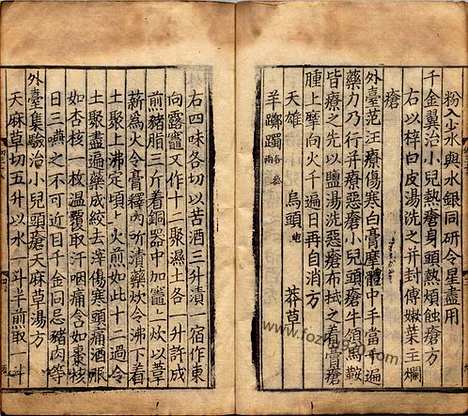 粉入少水與水銀同研令星盡用
千金翼治小兒熱瘡身頭熱煩蝕瘡方
右以梓白皮湯洗之并封傅嫩葉主爛
瘡
外臺范汪療傷寒白膏摩體中手當千遍
藥力乃行并療惡瘡小兒頭瘡牛領馬鞍
皆療之先以鹽湯洗惡瘡布拭之着膏瘡
腫上摩向火千遍日再自消方
天雄 烏頭 莽草
羊躑躅各三兩
右四味各切以苦酒三升漬一宿作東
向露竈又作十二聚濕土各一升許成
煎豬脂三斤着銅器中加竈上炊以葦
薪為火令膏釋內所漬藥炊令沸下着
土聚上沸定頃上火煎如此十二過令
土聚盡遍藥成絞去滓傷寒頭痛酒服
如杏核一枚溫覆取汗咽痛含如棗核
日三嚥之不可近目千金同忌豬肉等
外臺集驗治小兒頭瘡天麻草湯方
天麻草切五升以水一斗半煎取一斗
www.fozhu920.com